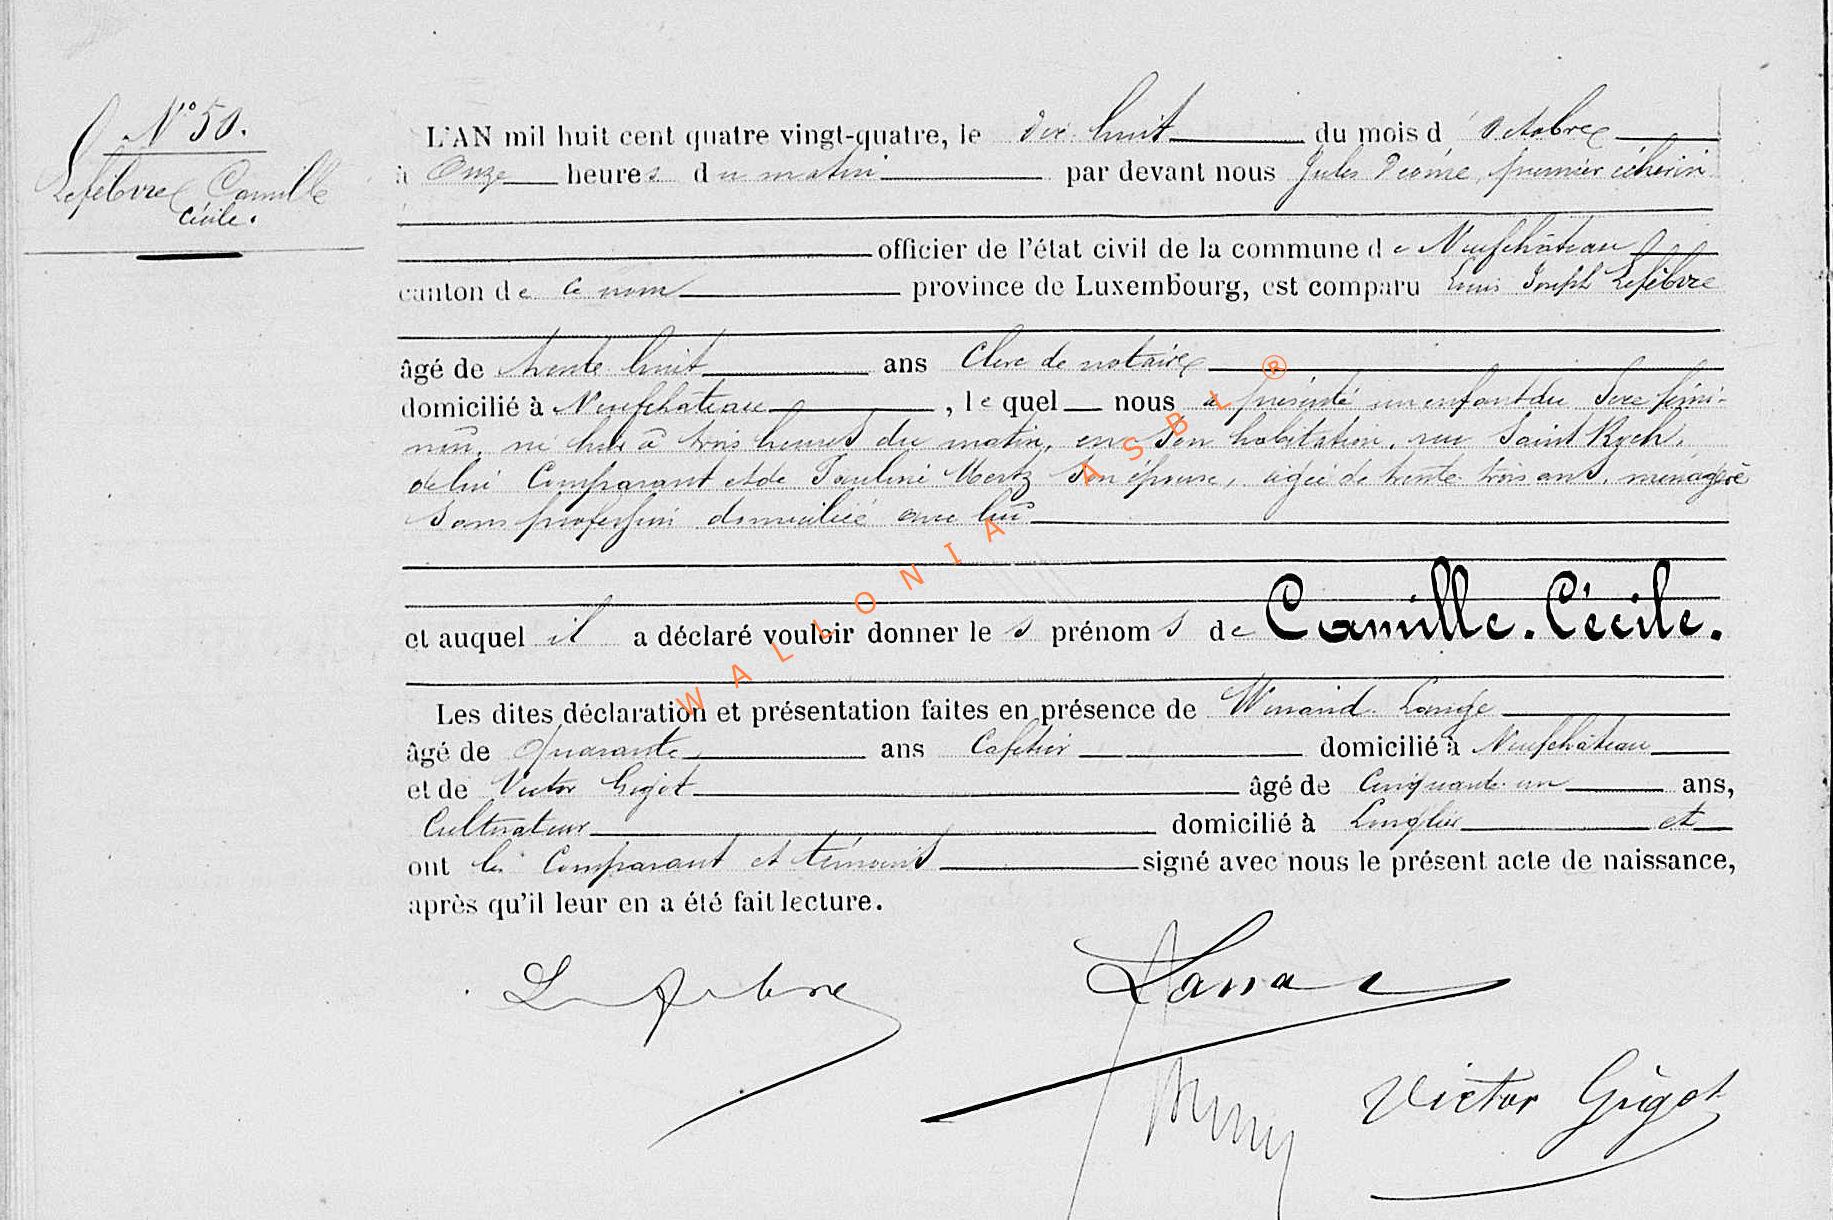 N° 50.
Lefebvre Camille
Cécile.
L'AN mil huit cent quatre vingt-quatre, le dix huit du mois d'Octobre
à Onze heures du matin par devant nous Jules premier échevin
officier de l'état civil de la commune de Neufchâteau
canton de ce nom province de Luxembourg, est comparu Louis Joseph Lefèbvre
âgé de trente huit ans Clerc de notaire
domicilié à Neufchateau, lequel nous a présenté un enfant du sexe fémi-
nin, né hier à trois heures du matin, en son habitation, rue Saint Roch,
de lui Comparant et de Pauline Mertz son épouse, agée de trente trois ans, ménagère
sans profession domiciliée avec lui
et auquel il a déclaré vouloir donner les prénoms de Camille. Cécile.
Les dites déclaration et présentation faites en présence de Winand Lange
âgé de quarante ans Cafetier domicilié à Neufchâteau
et de Victor Gigot âgé de Cinquante un ans,
Cultivateur domicilié à Longlier et
ont les Comparant et témoins signé avec nous le présent acte de naissance,
après qu'il leur en a été fait lecture.
Lefebvre
Lange
Victor Gigot
WALLONIA ASBL ®